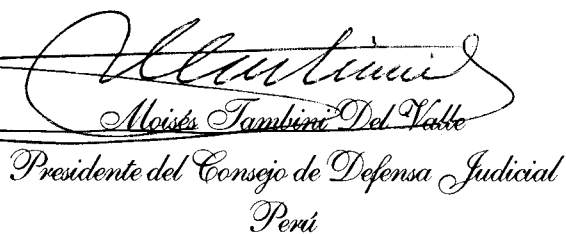 Moisés Tambini Del Valle
Presidente del Consejo de Defensa Judicial
Perú